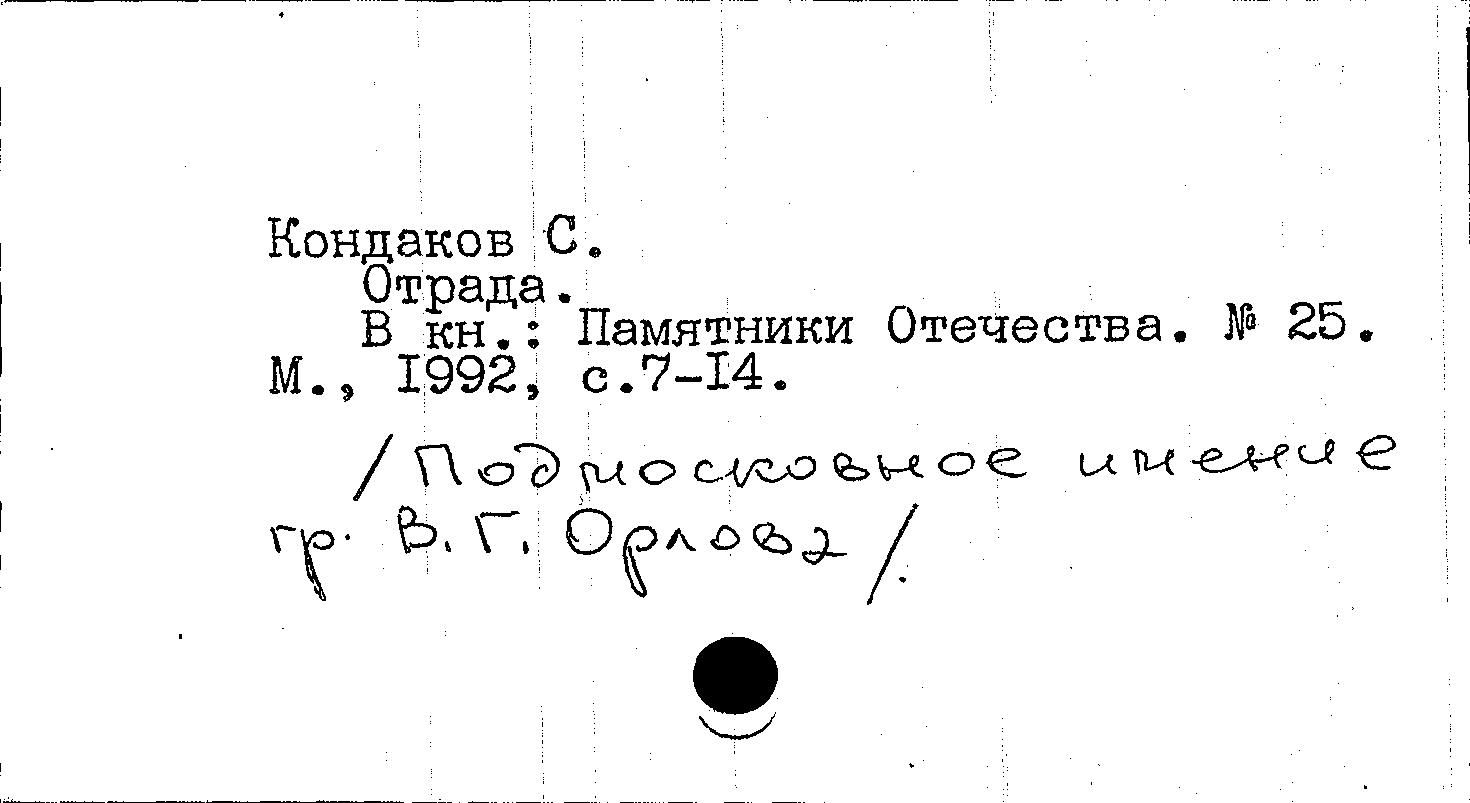 Кондаков С.
Отрада.
В кн.: Памятники Отечества. № 25.
М., 1992, с.7-14.
/Подмосковное имение
гр. В.Г. Орлова/.